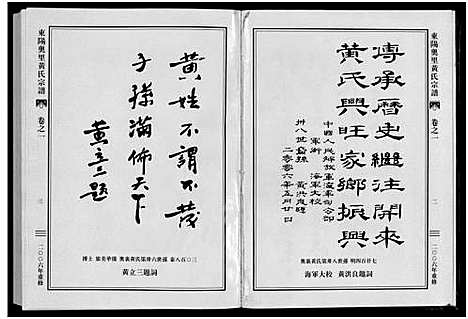 傳承歷史繼往開來
黃氏興旺家鄉振興
中國人民解放軍海軍司令部
海軍大校
卅八世孫 黃洪良題
二〇〇六年五月廿日
奧裏黃氏第卅八世孫 明四百廿七
海軍大校 黃洪良題詞
東陽奧里黃氏宗譜
卷之一
二〇〇六年重修
黃姓不謂不茂
子孫滿佈天下
黃立三題
博士 旅美華僑 奧裏黃氏第卅六世孫 泰八百〇三
黃立三題詞
東陽奧里黃氏宗譜
卷之一
二〇〇六年重修